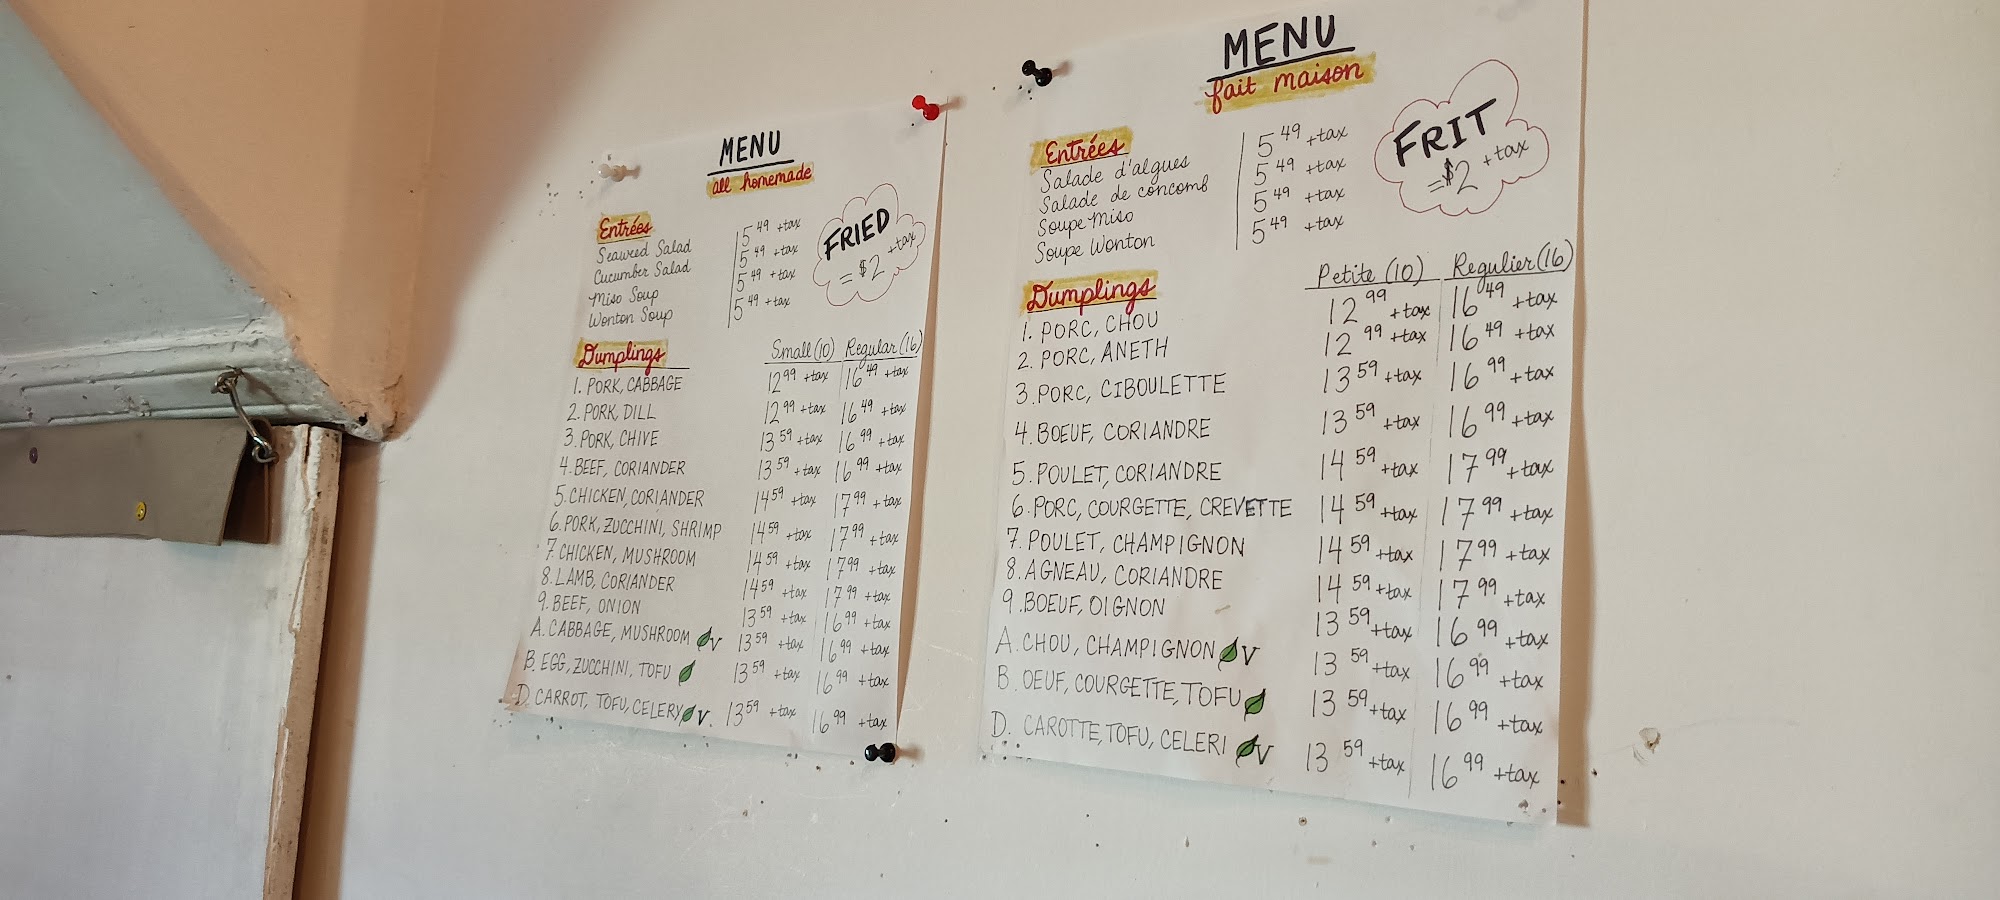 MENU
all homemade
FRIED
= $2 +tax
Entrées
Seaweed Salad 5 49 +tax
Cucumber Salad 5 49 +tax
Miso Soup 5 49 +tax
Wonton Soup 5 49 +tax
Dumplings Small (10) Regular (16)
1. PORK, CABBAGE 12 99 +tax 16 49 +tax
2. PORK, DILL 12 99 +tax 16 49 +tax
3. PORK, CHIVE 13 59 +tax 16 99 +tax
4. BEEF, CORIANDER 13 59 +tax 16 99 +tax
5. CHICKEN, CORIANDER 14 59 +tax 17 99 +tax
6. PORK, ZUCCHINI, SHRIMP 14 59 +tax 17 99 +tax
7. CHICKEN, MUSHROOM 14 59 +tax 17 99 +tax
8. LAMB, CORIANDER 14 59 +tax 17 99 +tax
9. BEEF, ONION 13 59 +tax 16 99 +tax
A. CABBAGE, MUSHROOM V 13 59 +tax 16 99 +tax
B. EGG, ZUCCHINI, TOFU 13 59 +tax 16 99 +tax
D. CARROT, TOFU, CELERY V. 13 59 +tax 16 99 +tax
MENU
fait maison
FRIT
= $2 +tax
Entrées
Salade d'algues 5 49 +tax
Salade de concomb 5 49 +tax
Soupe Miso 5 49 +tax
Soupe Wonton 5 49 +tax
Dumplings Petite (10) Regulier (16)
1. PORC, CHOU 12 99 +tax 16 49 +tax
2. PORC, ANETH 12 99 +tax 16 49 +tax
3. PORC, CIBOULETTE 13 59 +tax 16 99 +tax
4. BOEUF, CORIANDRE 13 59 +tax 16 99 +tax
5. POULET, CORIANDRE 14 59 +tax 17 99 +tax
6. PORC, COURGETTE, CREVETTE 14 59 +tax 17 99 +tax
7. POULET, CHAMPIGNON 14 59 +tax 17 99 +tax
8. AGNEAU, CORIANDRE 14 59 +tax 17 99 +tax
9. BOEUF, OIGNON 13 59 +tax 16 99 +tax
A. CHOU, CHAMPIGNON V 13 59 +tax 16 99 +tax
B. OEUF, COURGETTE, TOFU 13 59 +tax 16 99 +tax
D. CAROTTE, TOFU, CELERI V 13 59 +tax 16 99 +tax